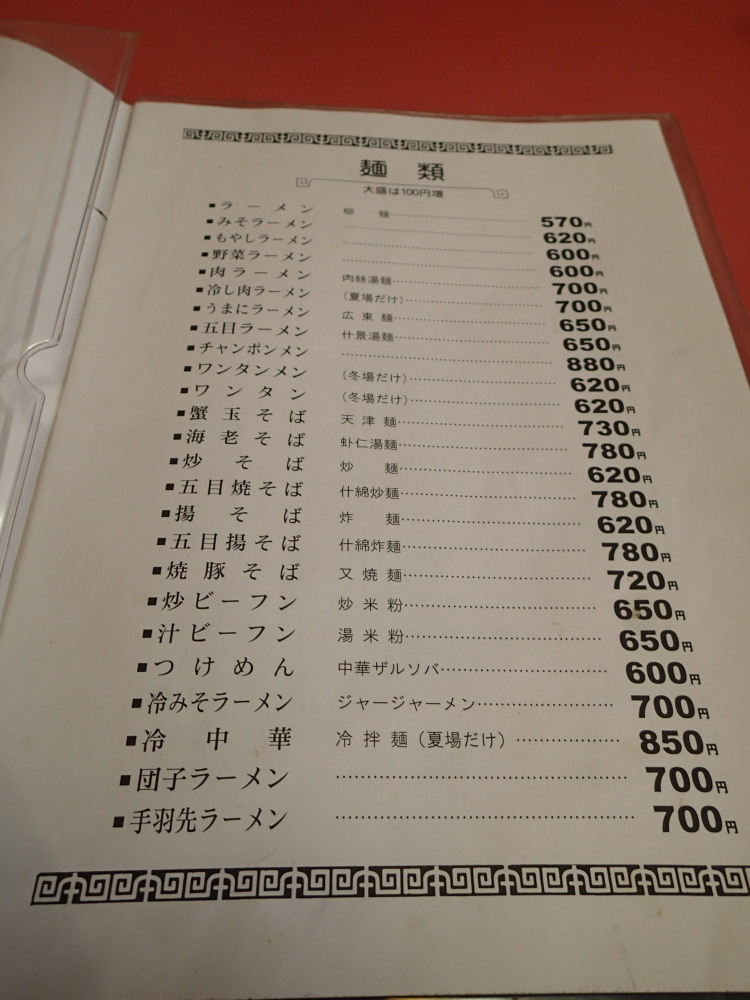 麺類
大盛は100円増
■ラーメン 柳麺 570円
■みそラーメン 620円
■もやしラーメン 600円
■野菜ラーメン 600円
■肉ラーメン 肉絲湯麺 700円
■冷し肉ラーメン (夏場だけ) 700円
■うまにラーメン 広東麺 650円
■五目ラーメン 什景湯麺 650円
■チャンポンメン 880円
■ワンタンメン (冬場だけ) 620円
■ワンタン (冬場だけ) 620円
■蟹玉そば 天津麺 730円
■海老そば 虾仁湯麺 780円
■炒そば 炒麺 620円
■五目焼そば 什綿炒麺 780円
■揚そば 炸麺 620円
■五目揚そば 什綿炸麺 780円
■焼豚そば 又焼麺 720円
■炒ビーフン 炒米粉 650円
■汁ビーフン 湯米粉 650円
■つけめん 中華ザルソバ 600円
■冷みそラーメン ジャージャーメン 700円
■冷中華 冷拌麺(夏場だけ) 850円
■団子ラーメン 700円
■手羽先ラーメン 700円